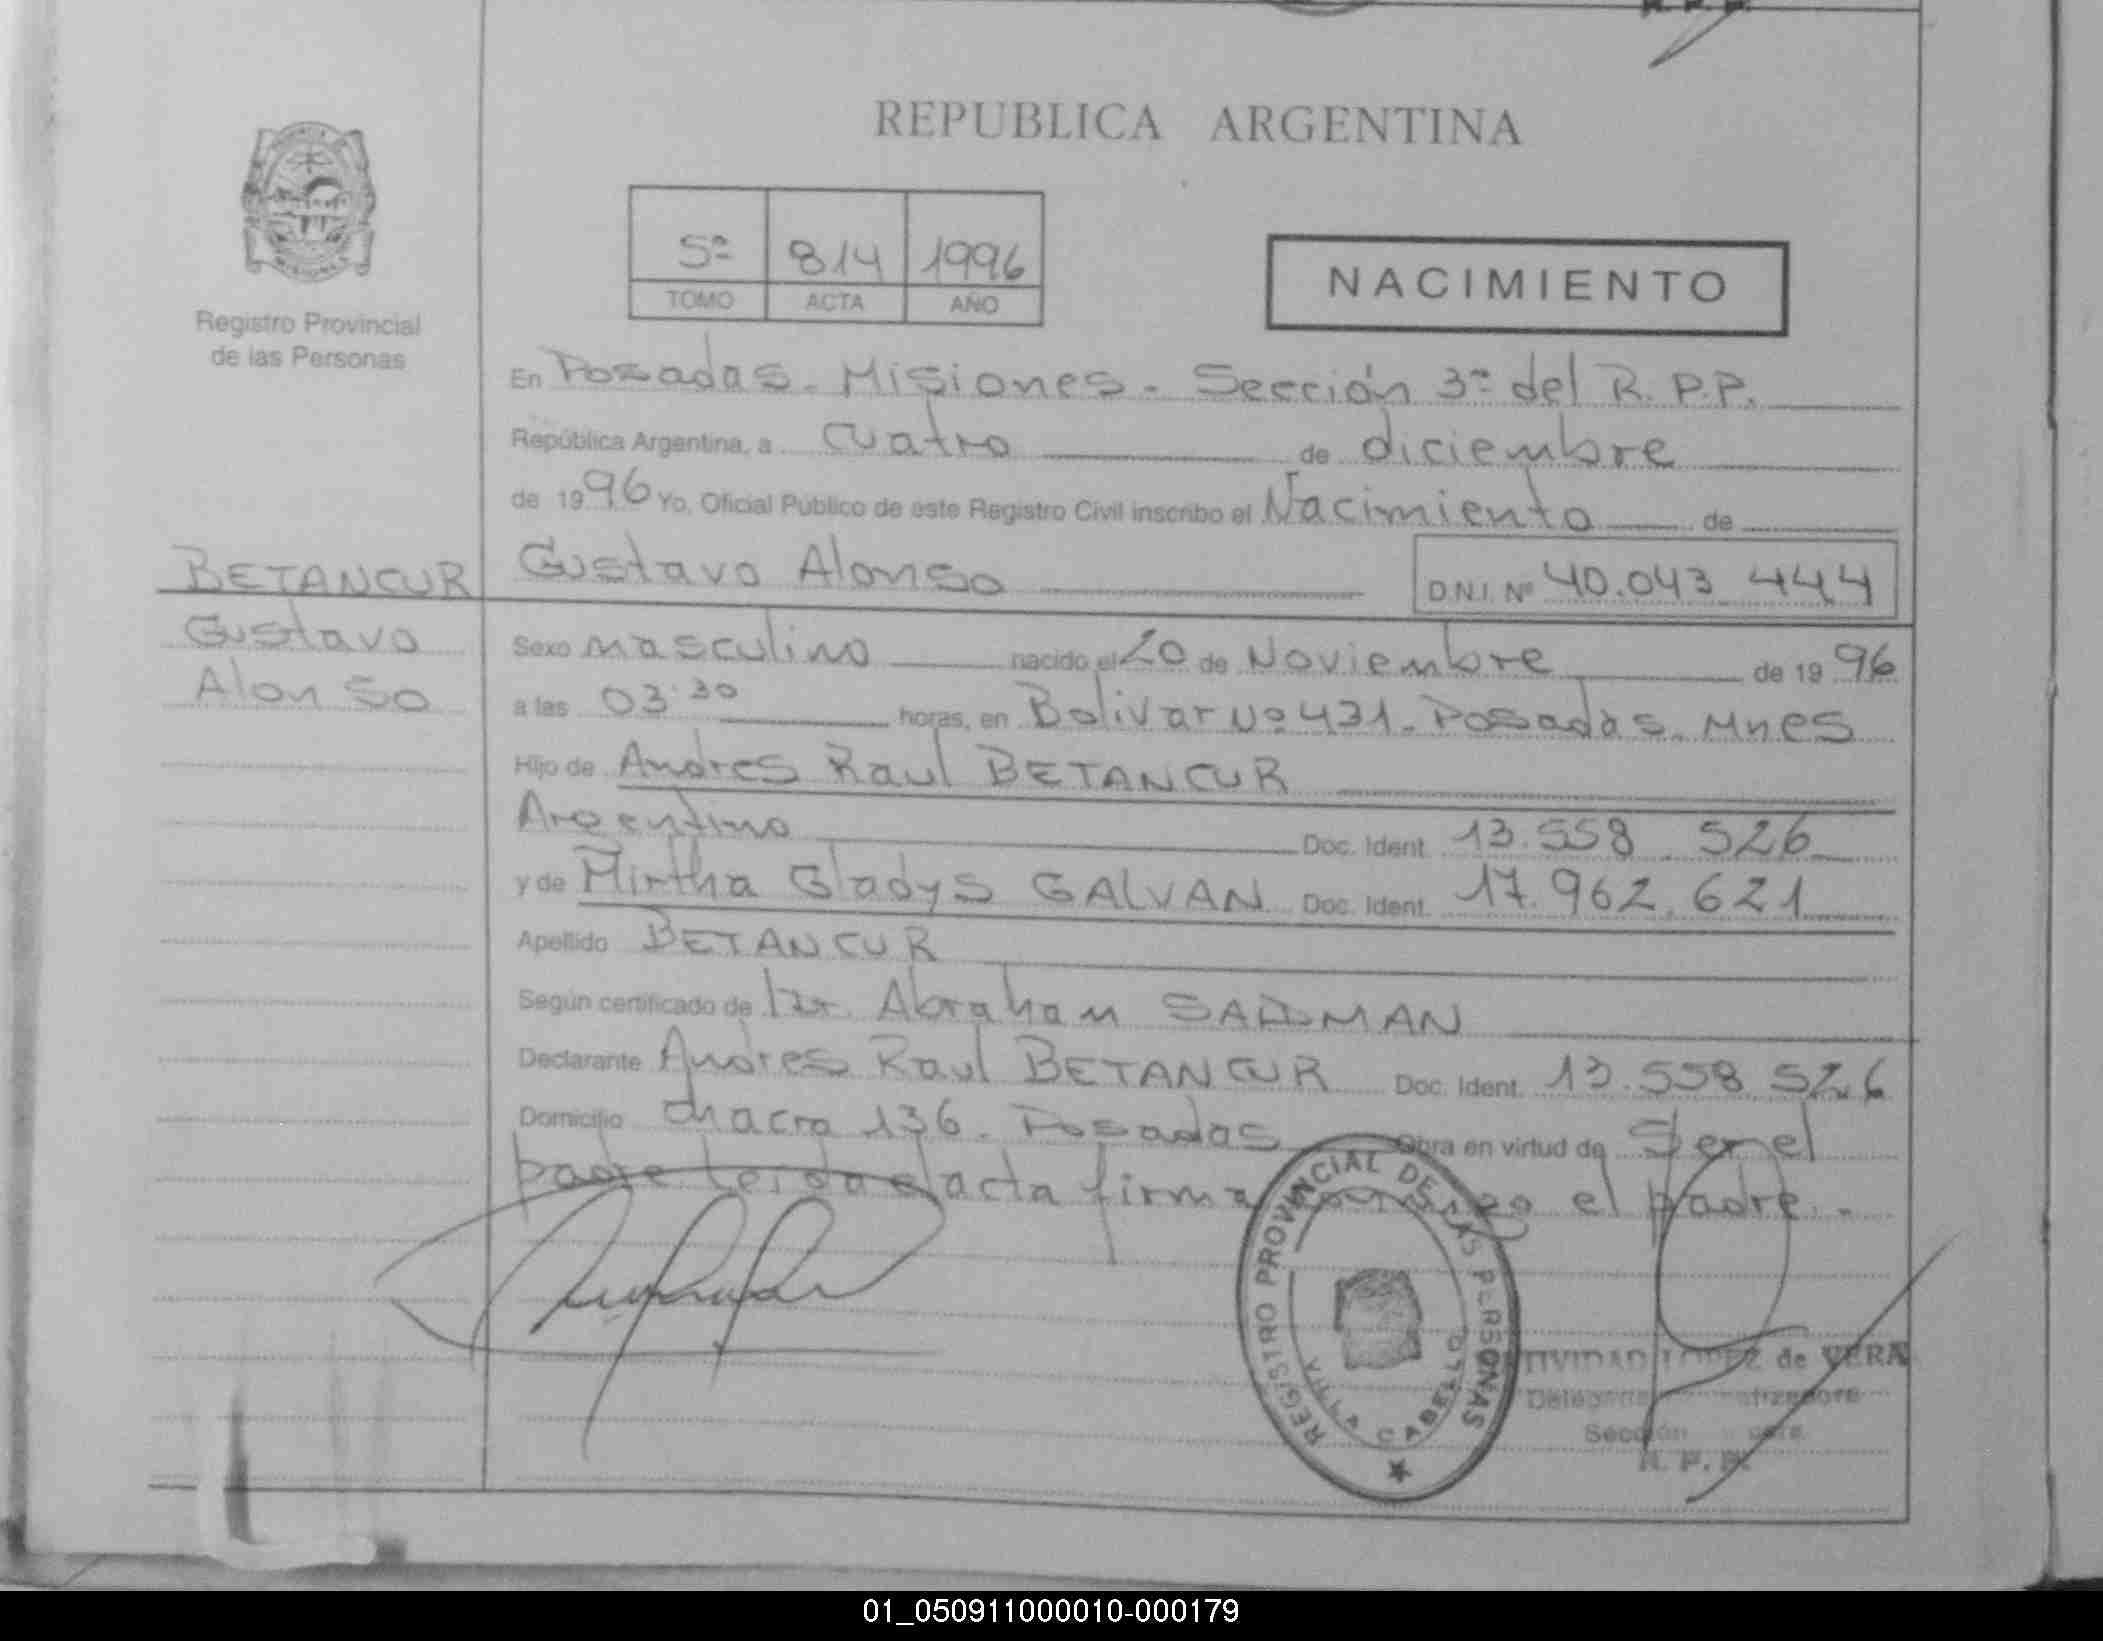 REPUBLICA ARGENTINA
Registro Provincial
de las Personas
5º 814 1996
TOMO ACTA AÑO
NACIMIENTO
En Posadas - Misiones - Sección 3ª del R.P.P.
República Argentina, a cuatro de diciembre
de 1996 Yo, Oficial Público de este Registro Civil inscribo el Nacimiento de
BETANCUR
Gustavo
Alonso
Gustavo Alonso D.N.I. Nº 40.043 444
Sexo masculino nacido el 20 de Noviembre de 1996
a las 03:30 horas, en Bolivar Nº 431 - Posadas - Mnes
Hijo de Andres Raul BETANCUR
Argentino Doc. Ident. 13.558 526
y de Mirtha Gladys GALVAN Doc. Ident. 17.962.621
Apellido BETANCUR
Según certificado de Dr. Abraham
Declarante Andres Raul BETANCUR Doc. Ident. 13.558 526
Domicilio chacra 136 - Posadas Obra en virtud de Ser el
padre Leida el acta firma conmigo el padre.-
REGISTRO PROVINCIAL DE LAS PERSONAS
VILLA CABELLO
LOPEZ de VERA
Sección
R. P. P.
01_050911000010-000179